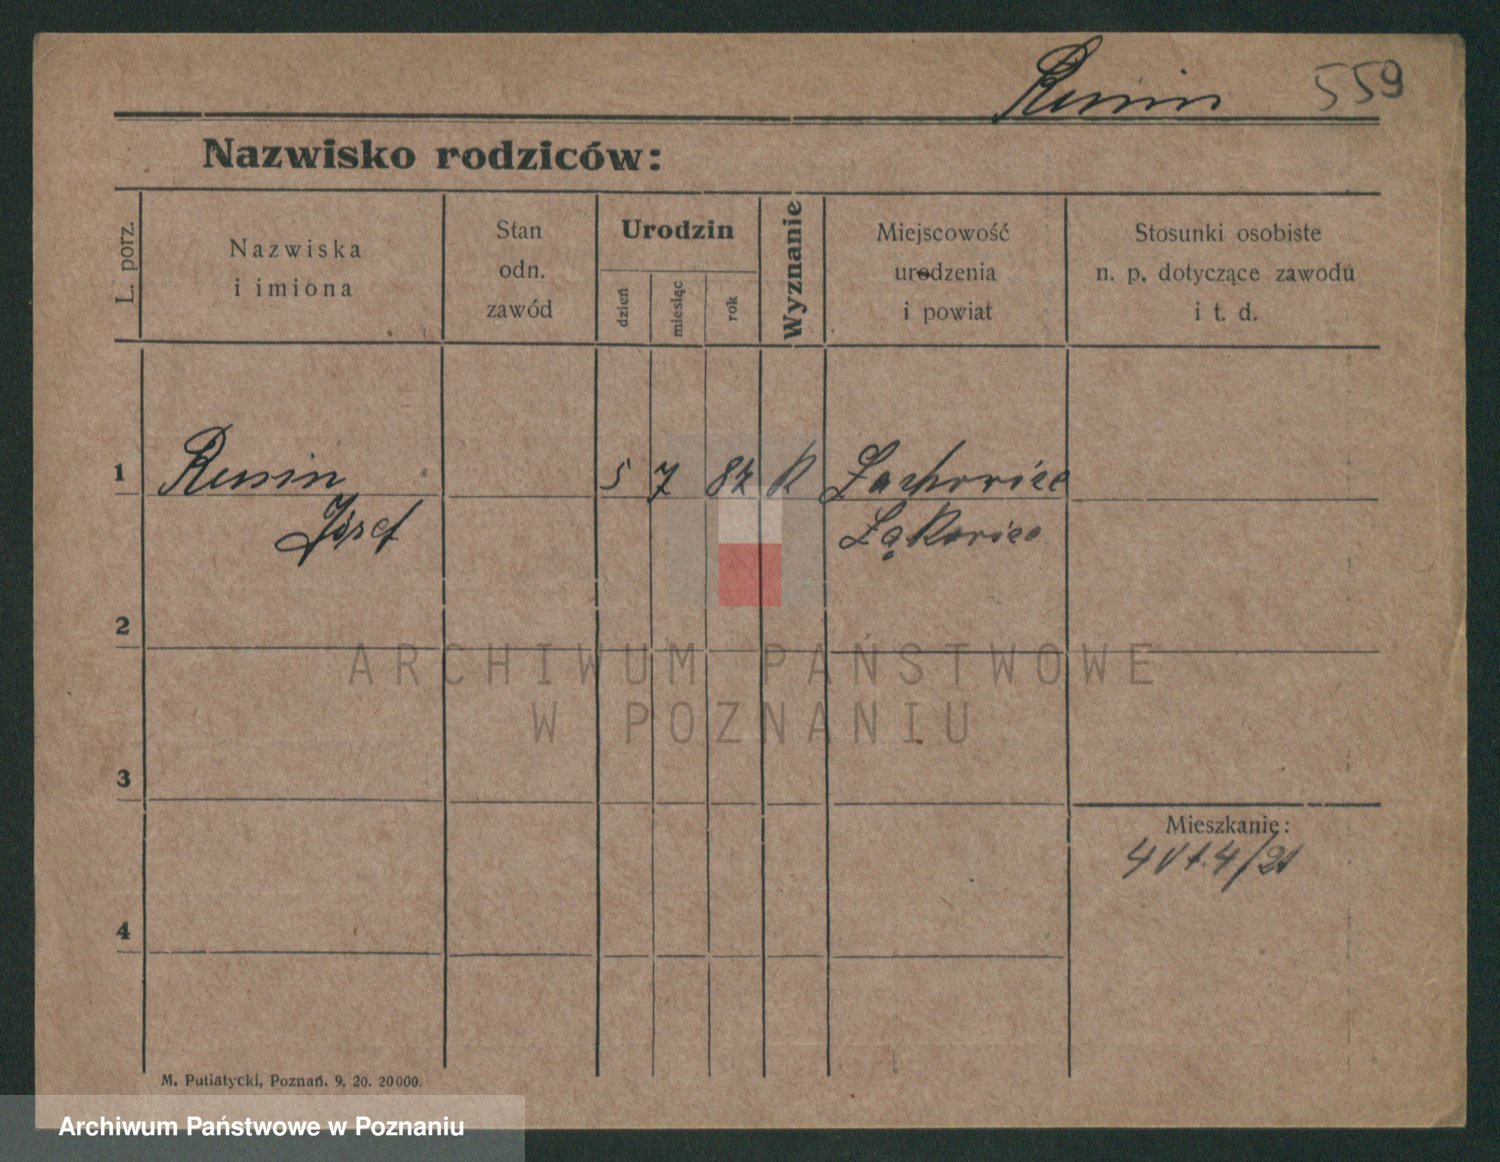 Rusin 559
Nazwisko rodziców:
L. porz.
Nazwiska
i imiona
Stan
odn.
zawód
Urodzin
dzień
miesiąc
rok
Wyznanie
Miejscowość
urodzenia
i powiat
Stosunki osobiste
n. p. dotyczące zawodu
i t. d.
1 Rusin 5 7 87 K
Józef
2
3
Mieszkanie:
4
M. Putiatycki, Poznań. 9. 20. 20000.
ARCHIWUM PAŃSTWOWE
W POZNANIU
Archiwum Państwowe w Poznaniu